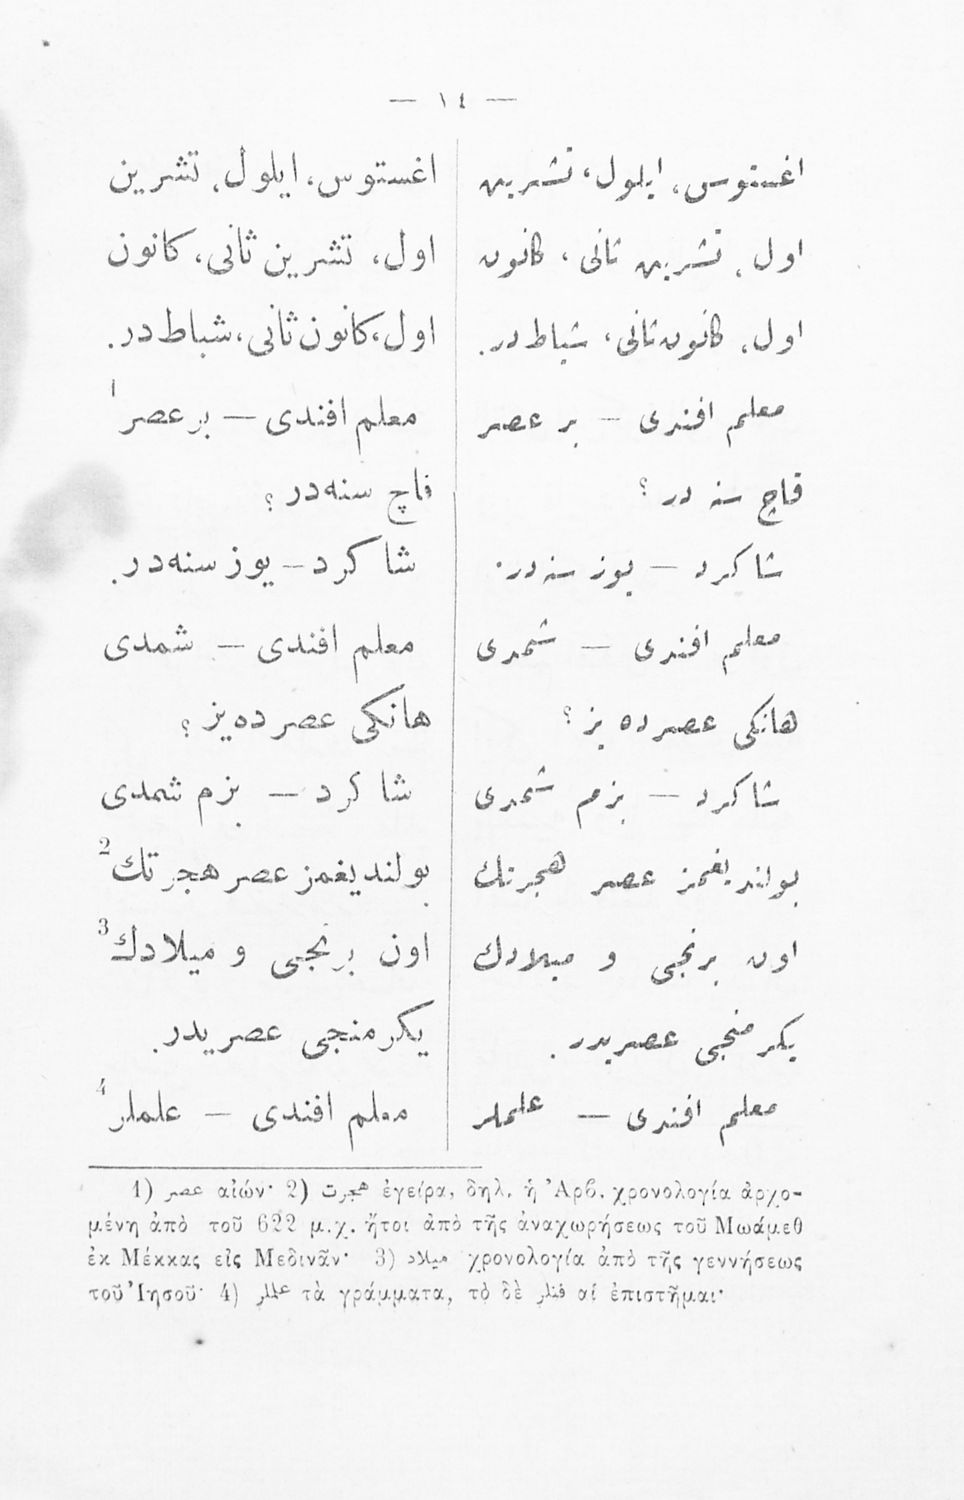 — ١٤ —
اغستوس، ايلول، تشرين
اول، تشرين ثانى، كانون
اول، كانون ثانى، شباط در.
معلم افندى — بر عصر
قاچ سنه در ؟
شاكرد — يوز سنه در.
معلم افندى — شمدى
هانكى عصرده يز ؟
شاكرد — بزم شمدى
بولنديغمز عصر هجرتك
اون برنجى و ميلادك
يكرمنجى عصريدر.
معلم افندى — علملر
اغستوس، ايلول، تشرين
اول، تشرين ثانى، كانون
اول، كانون ثانى، شباط در.
معلم افندى — بر عصر 1
قاچ سنه در ؟
شاكرد — يوز سنه در.
معلم افندى — شمدى
هانكى عصرده يز ؟
شاكرد — بزم شمدى
بولنديغمز عصر هجرتك 2
اون برنجى و ميلادك 3
يكرمنجى عصريدر.
معلم افندى — علملر 4
1) عصر αἰών· 2) هجرت ἐγείρα, δηλ. ἡ Ἀρβ. χρονολογία ἀρχο-
μένη ἀπὸ τοῦ 622 μ.χ. ἤτοι ἀπὸ τῆς ἀναχωρήσεως τοῦ Μωάμεθ
ἐκ Μέκκας εἰς Μεδινᾶν· 3) ميلاد χρονολογία ἀπὸ τῆς γεννήσεως
τοῦ Ἰησοῦ· 4) τὰ γράμματα, τὸ δὲ αἱ ἐπιστῆμαι·